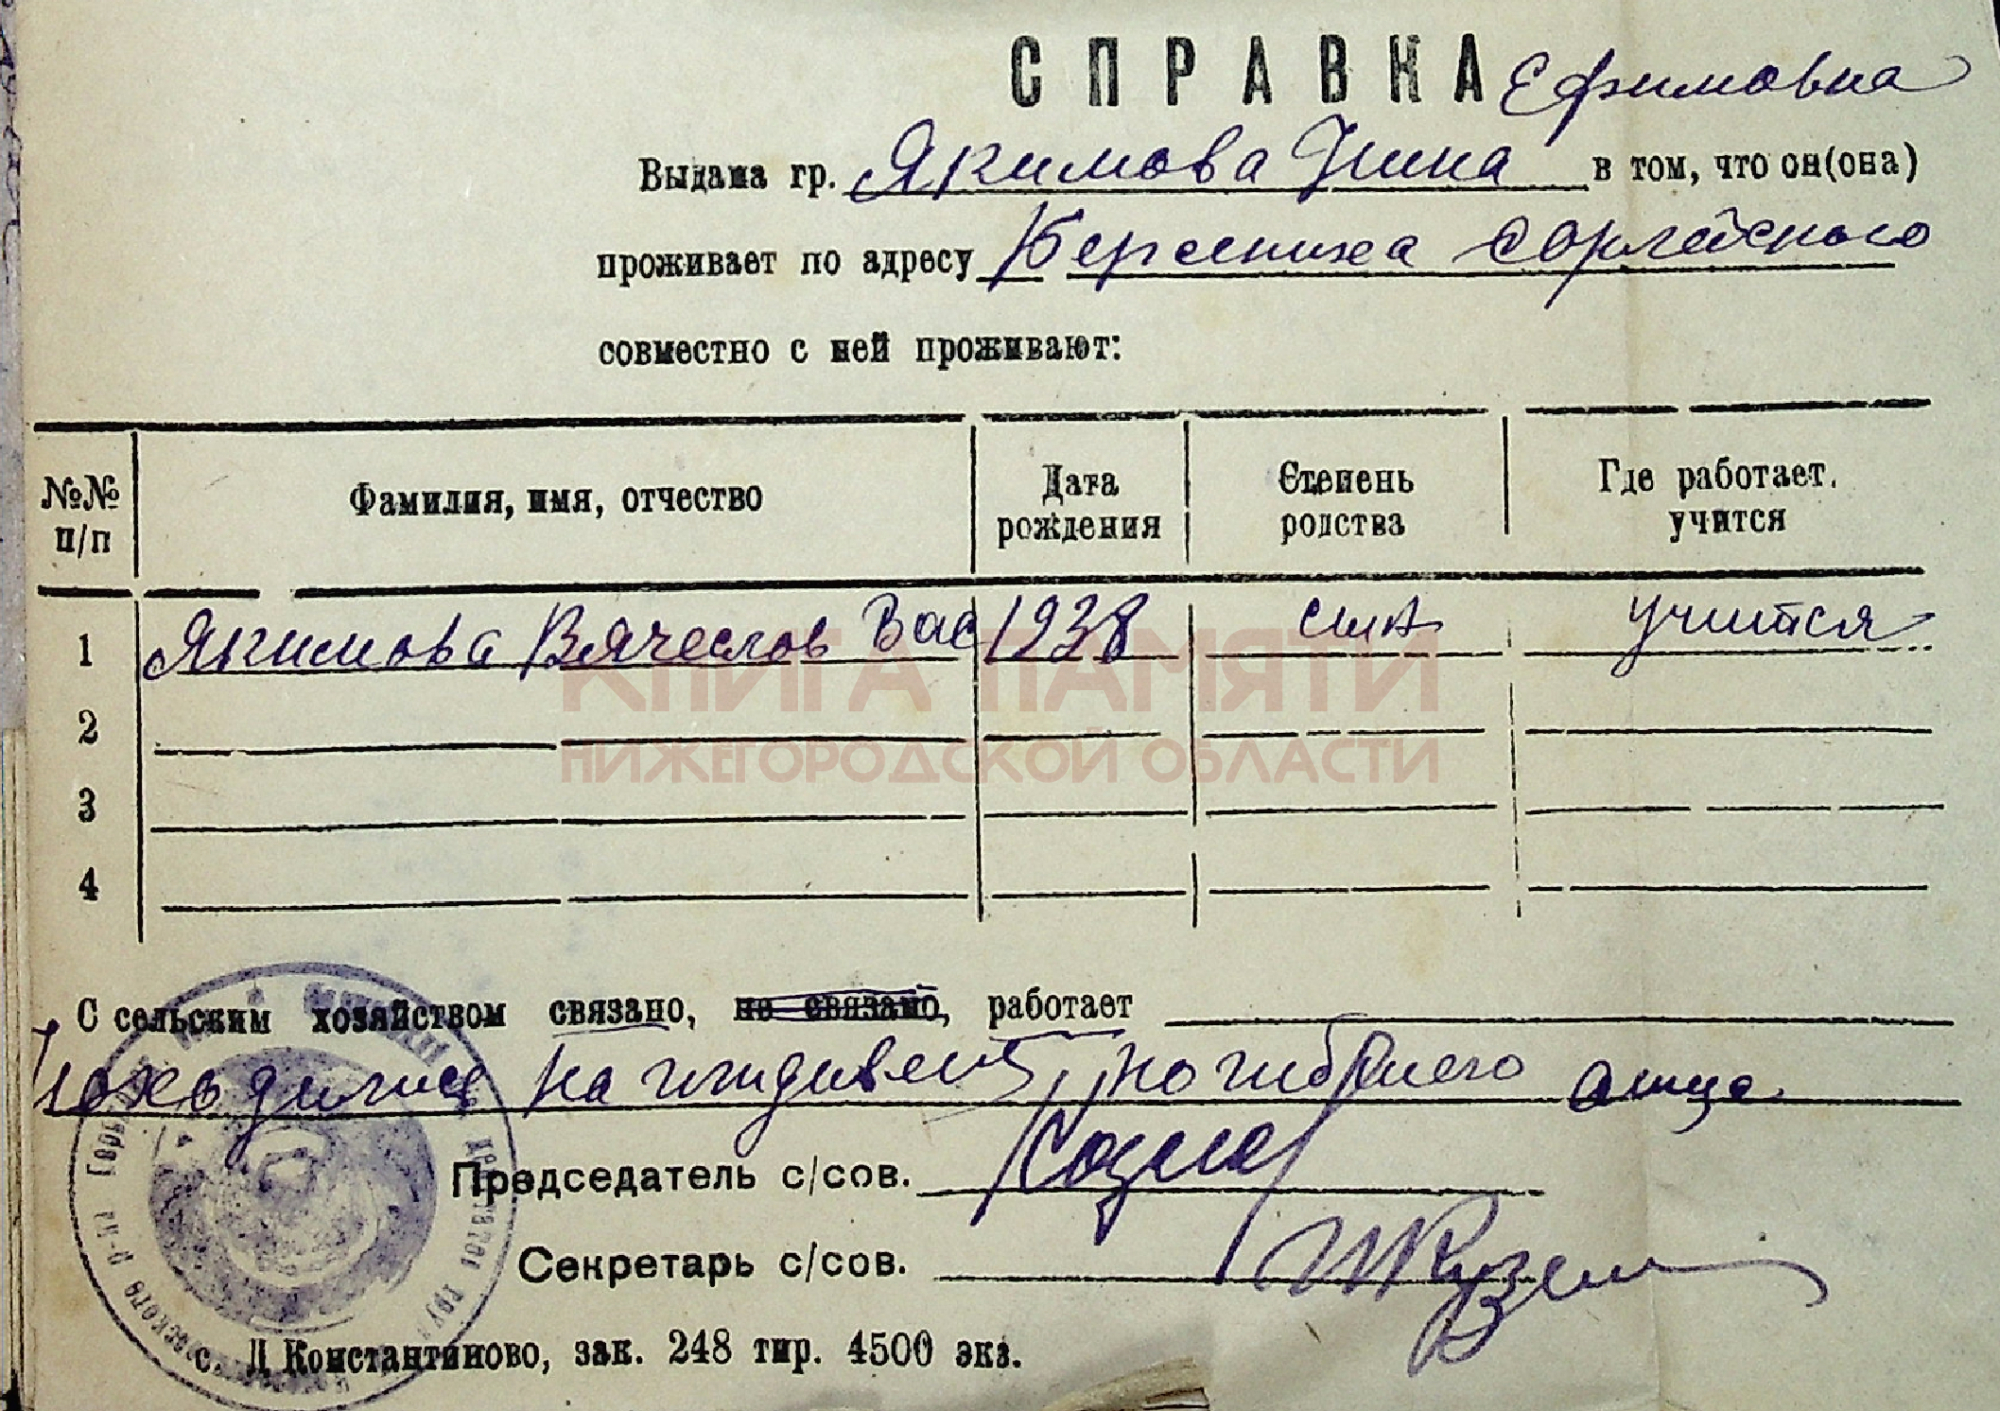 СПРАВКА Ефимовна
Выдана гр. Якимова Нина в том, что он(она)
проживает по адресу Берсениха Сорлейского
совместно с ней проживают:
№№ п/п Фамилия, имя, отчество Дата рождения Степень родства Где работает, учится
1 Якимова Вячеслов Вас 1938 сын учится
2
3
4
КНИГА ПАМЯТИ
НИЖЕГОРОДСКОЙ ОБЛАСТИ
С сельским хозяйством связано, не связано, работает
находился на иждивении погибшего отца
Председатель с/сов.
Секретарь с/сов.
с. Д Константиново, зак. 248 тир. 4500 экз.